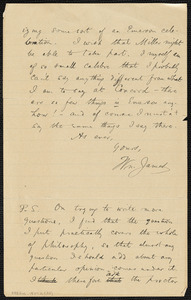 ing some sort of an Emerson cele-
bration. I wish that Miller might
be able to take part. I myself am
of so small calibre that I probably
can't say anything different from what
I am to say at Concord — there
are so few things in Emerson any
how — and of course I must not
say the same things I say there.
As ever,
Yours,
Wm James
P.S. On trying to write more
questions, I find that the question
I put practically covers the whole
of philosophy, so that almost any
question I should add about any
particular opinions comes under it.
I therefore ask the proctor